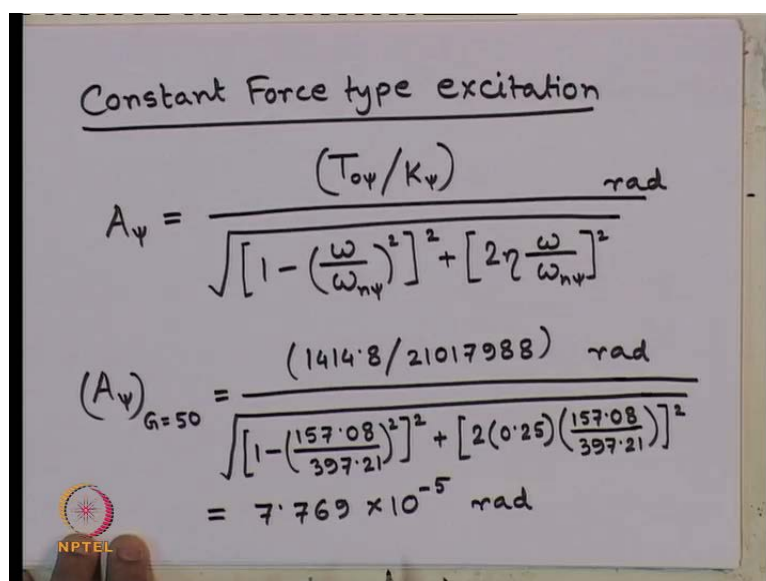 Constant Force type excitation
Aψ = (Toψ/Kψ) / √([1-(ω/ωnψ)²]² + [2η ω/ωnψ]²) rad
(Aψ)G=50 = (1414.8/21017988) / √([1-(157.08/397.21)²]² + [2(0.25)(157.08/397.21)]²) rad
= 7.769 × 10⁻⁵ rad
NPTEL